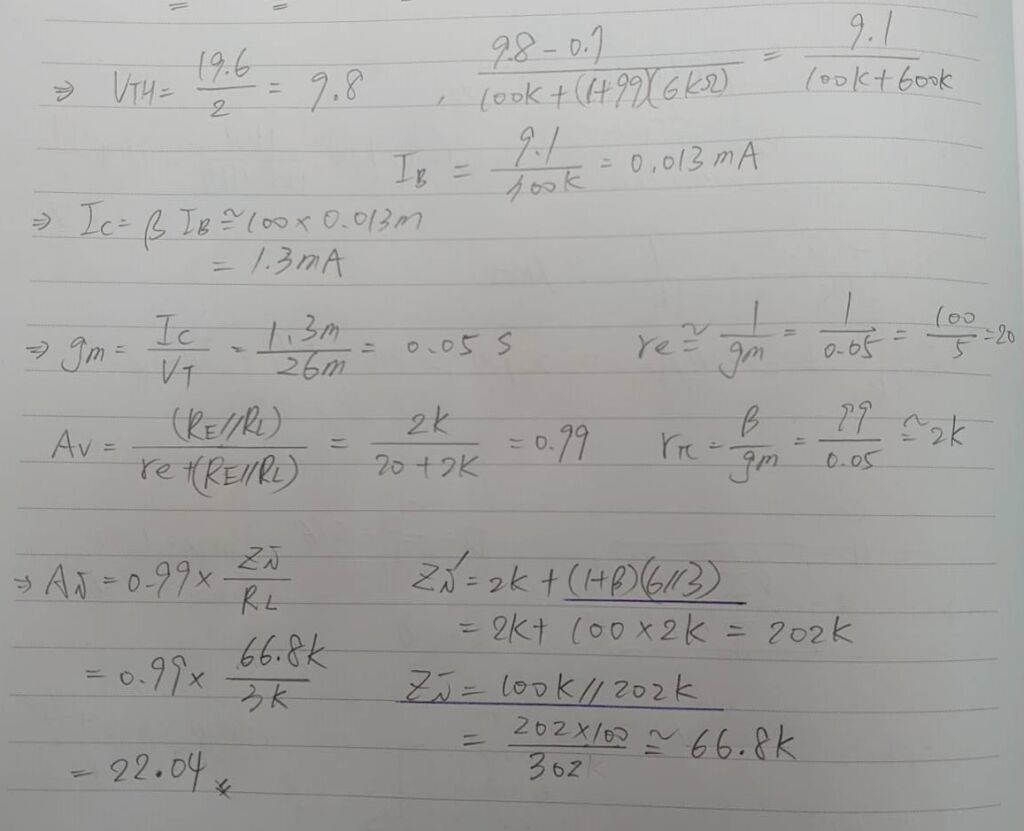 ⇒ VTH = 19.6/2 = 9.8 , (9.8 - 0.7)/(100K + (1+99)(6KΩ)) = 9.1/(100K + 600K)
IB = 9.1/700K = 0.013 mA
⇒ IC = β IB ≅ 100 × 0.013m
= 1.3mA
⇒ gm = IC/VT = 1.3m/26m = 0.05 S re ≅ 1/gm = 1/0.05 = 100/5 = 20
AV = (RE//RL)/(re + (RE//RL)) = 2K/(20 + 2K) = 0.99 rπ = β/gm = 99/0.05 ≅ 2K
⇒ Ai = 0.99 × Zi/RL Zi' = 2K + (1+β)(6//3)
= 2K + 100 × 2K = 202K
= 0.99 × 66.8K/3K Zi = 100K // 202K
= (202 × 100)/302 ≅ 66.8K
= 22.04